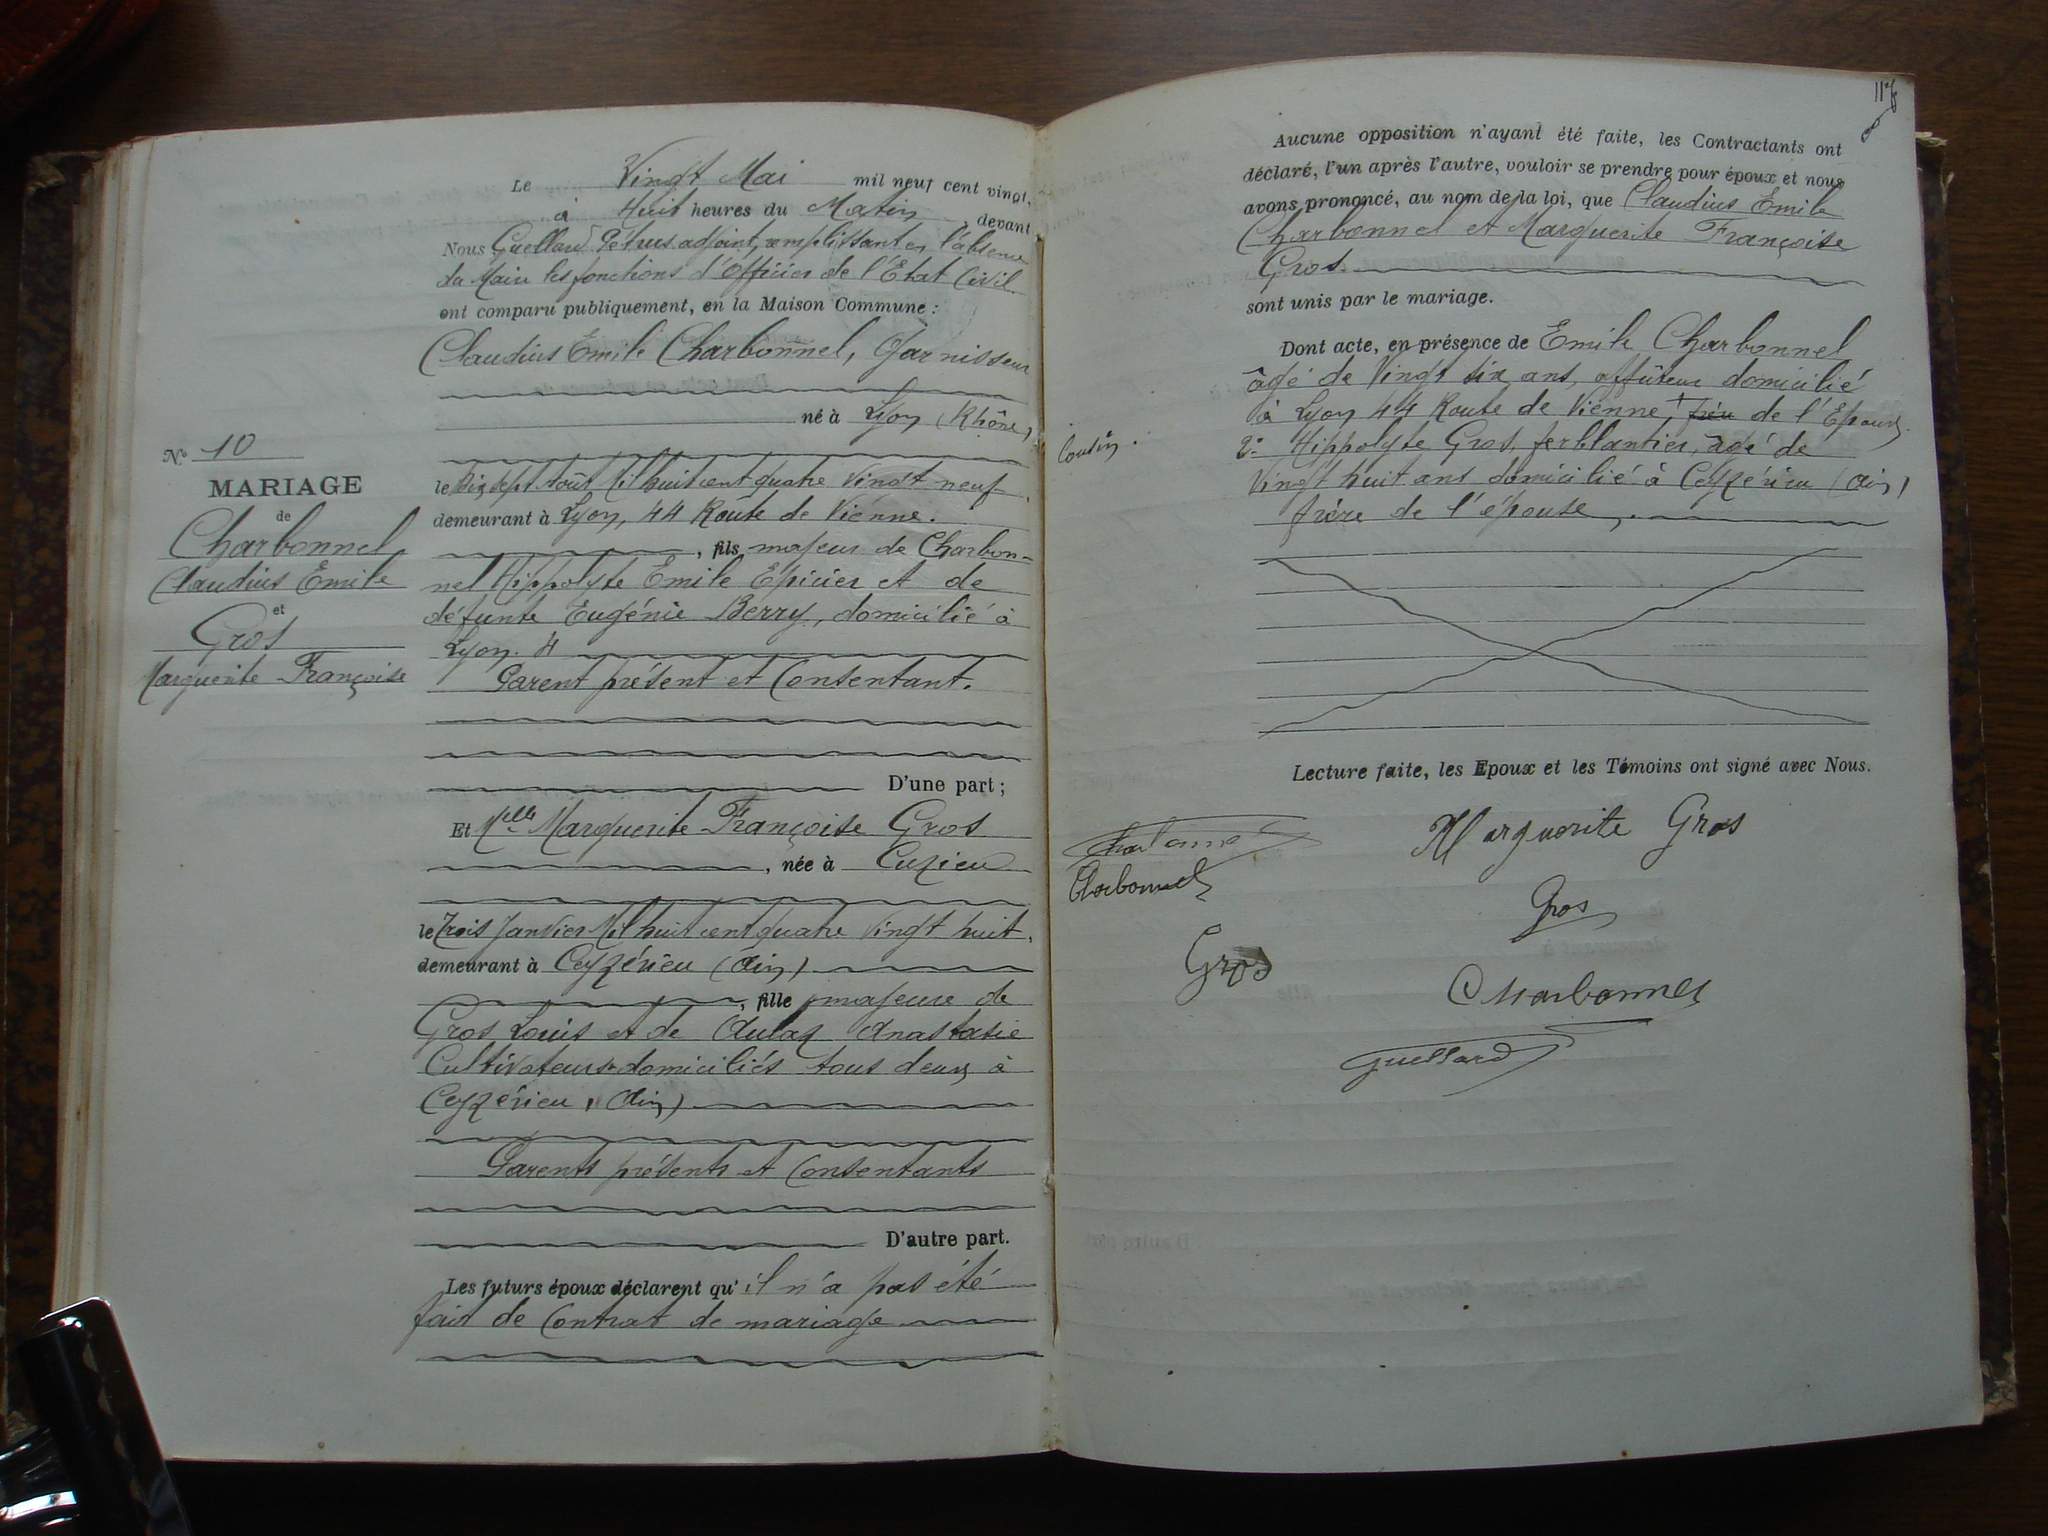 Le Vingt Mai mil neuf cent vingt,
à Huit heures du Matin, devant
Nous Guellard Pétrus, adjoint, remplissant en l'absence
du Maire les fonctions d'Officier de l'Etat Civil
ont comparu publiquement, en la Maison Commune :
Claudius Emile Charbonnel, Garnisseur
né à Lyon (Rhône)
le Dix sept Août Mil huit cent quatre Vingt neuf
demeurant à Lyon, 44 Route de Vienne.
, fils majeur de Charbon-
nel Hippolyte Emile Epicier et de
défunte Eugénie Berry, domicilié à
Lyon. 4
Parent présent et Consentant.
D'une part ;
Et Melle Marguerite Françoise Gros
, née à Cuzieu
le Trois Janvier Mil huit cent quatre Vingt huit,
demeurant à Ceyzérieu (Ain)
, fille majeure de
Gros Louis et de Anastasie
Cultivateurs domiciliés tous deux à
Ceyzérieu, (Ain)
Parents présents et Consentants
D'autre part.
Les futurs époux déclarent qu'il n'a pas été
fait de Contrat de mariage
N° 10
MARIAGE
de
Charbonnel
Claudius Emile
et
Gros
Marguerite Françoise
Aucune opposition n'ayant été faite, les Contractants ont
déclaré, l'un après l'autre, vouloir se prendre pour époux et nous
avons prononcé, au nom de la loi, que Claudius Emile
Charbonnel et Marguerite Françoise
Gros.
sont unis par le mariage.
Dont acte, en présence de Emile Charbonnel
âgé de Vingt six ans, affûteur domicilié
à Lyon 44 Route de Vienne, + frère de l'Epoux.
Cousin.
2° Hippolyte Gros, ferblantier, âgé de
Vingt huit ans domicilié à Ceyzérieu (Ain)
frère de l'épouse,.
Lecture faite, les Epoux et les Témoins ont signé avec Nous.
Marguerite Gros
Charbonnel
Charbonnel
Gros
Gros
Charbonnel
Guellard